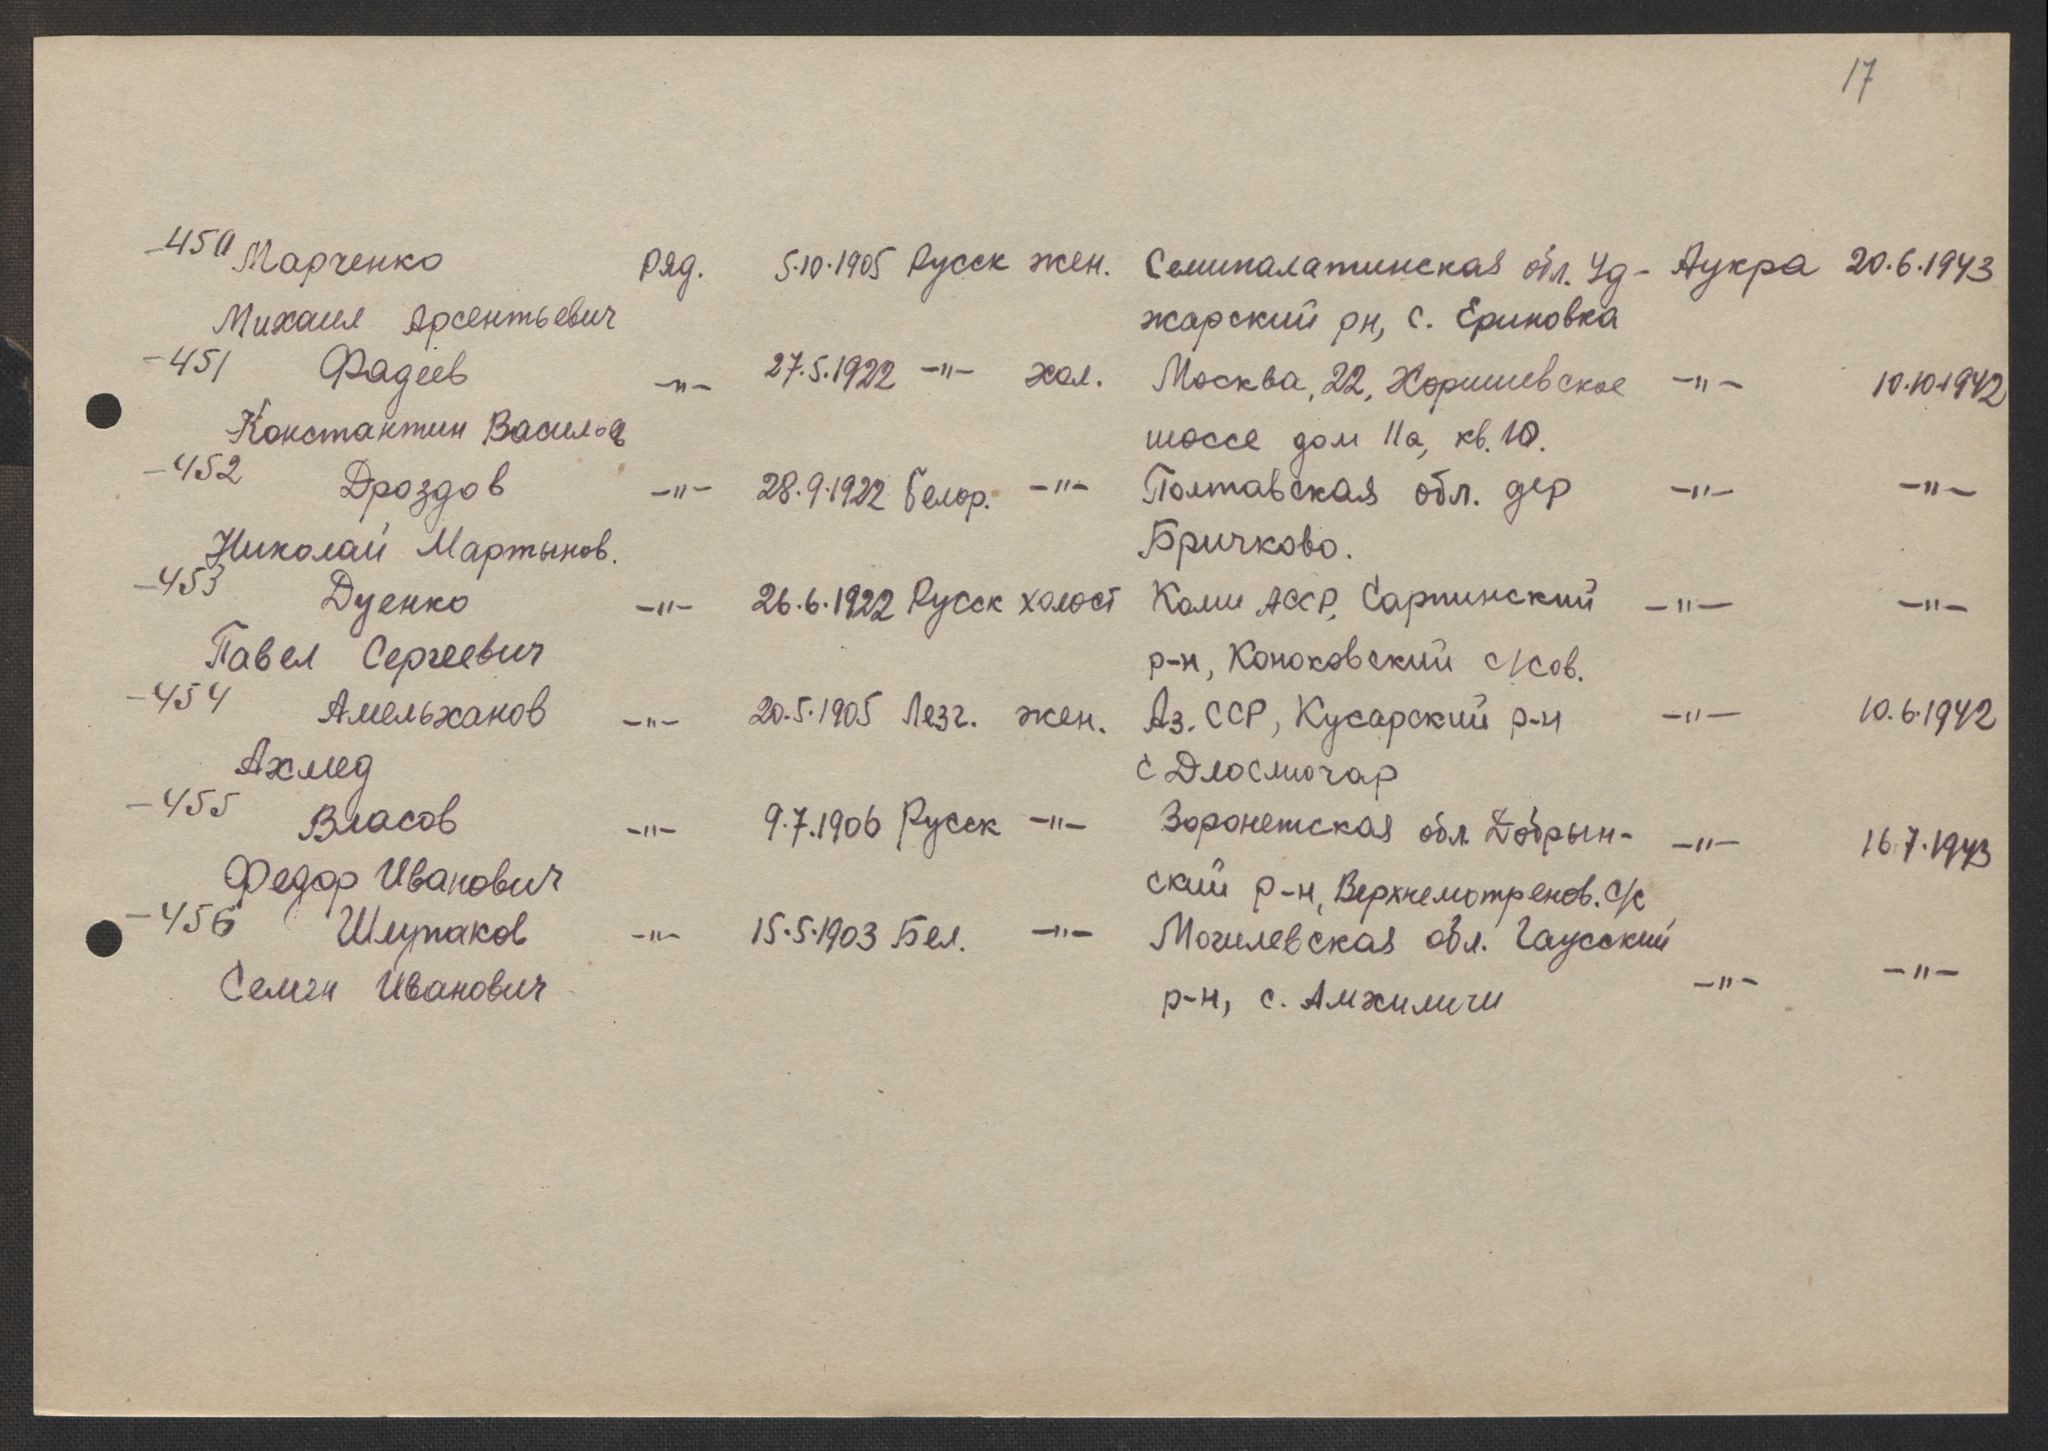 17
-450 Марченко Ряд. 5.10.1905 Русск жен. Семипалатинская обл. Уд- Аукра 20.6.1943
Михаил Арсентьевич жарский рн, с. Ериновка
-451 Фадеев -"- 27.5.1922 -"- хол. Москва, 22, Хоришевское -"- 10.10.1942
Константин Василь шоссе дом 11а, кв. 10.
-452 Дроздов -"- 28.9.1922 Белор. -"- Полтавская обл. дер -"- -"-
Николай Мартынов. Бричково.
-453 Дуенко -"- 26.6.1922 Русск холост Коми АССР, Сарпинский -"- -"-
Павел Сергеевич р-н, Коноковский с/сов.
-454 Амельханов -"- 20.5.1905 Лезг. жен. Аз. ССР, Кусарский р-н -"- 10.6.1942
Ахмед с Длосмочар
-455 Власов -"- 9.7.1906 Русск -"- Воронетская обл Добрын- -"- 16.7.1943
Федор Иванович ский р-н, Верхнемотренов. с/с
-456 Шлупаков -"- 15.5.1903 Бел. -"- Могилевская обл. Чаусский
Семен Иванович р-н, с. Амхиличи -"- -"-